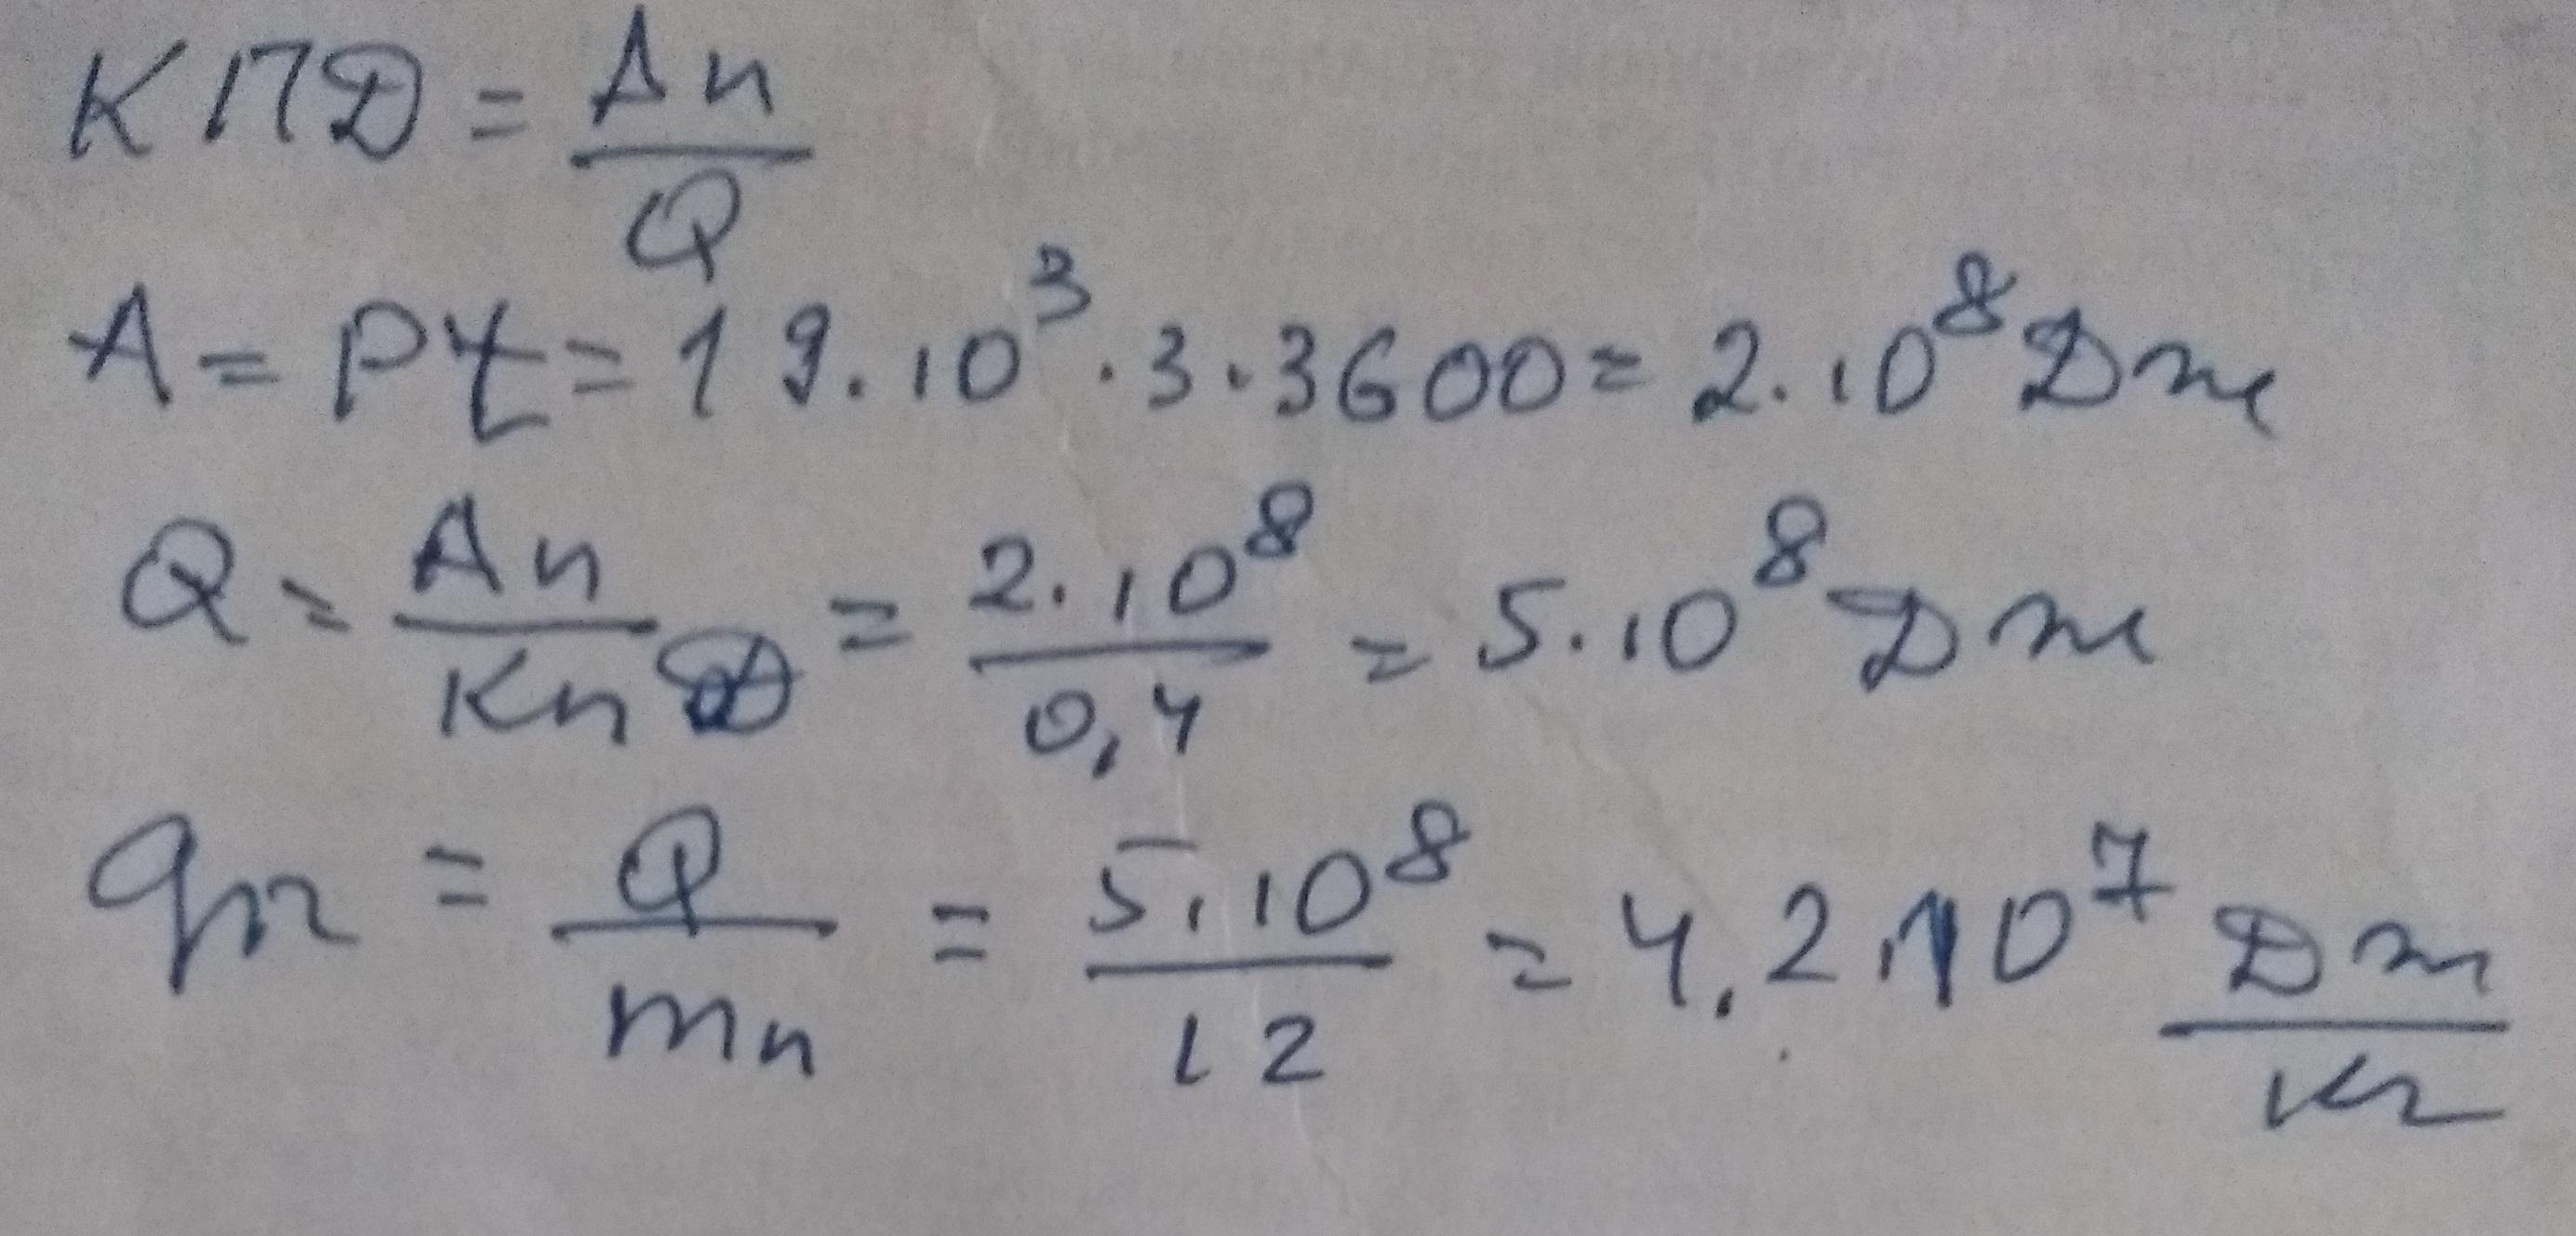 КПД = Aп / Q
A = Pt = 19 . 10³ . 3 . 3600 = 2 . 10⁸ Дж
Q = Aп / КпД = 2 . 10⁸ / 0,4 = 5 . 10⁸ Дж
= Q / mп = 5 . 10⁸ / 12 = 4,2 . 10⁷ Дж / кг